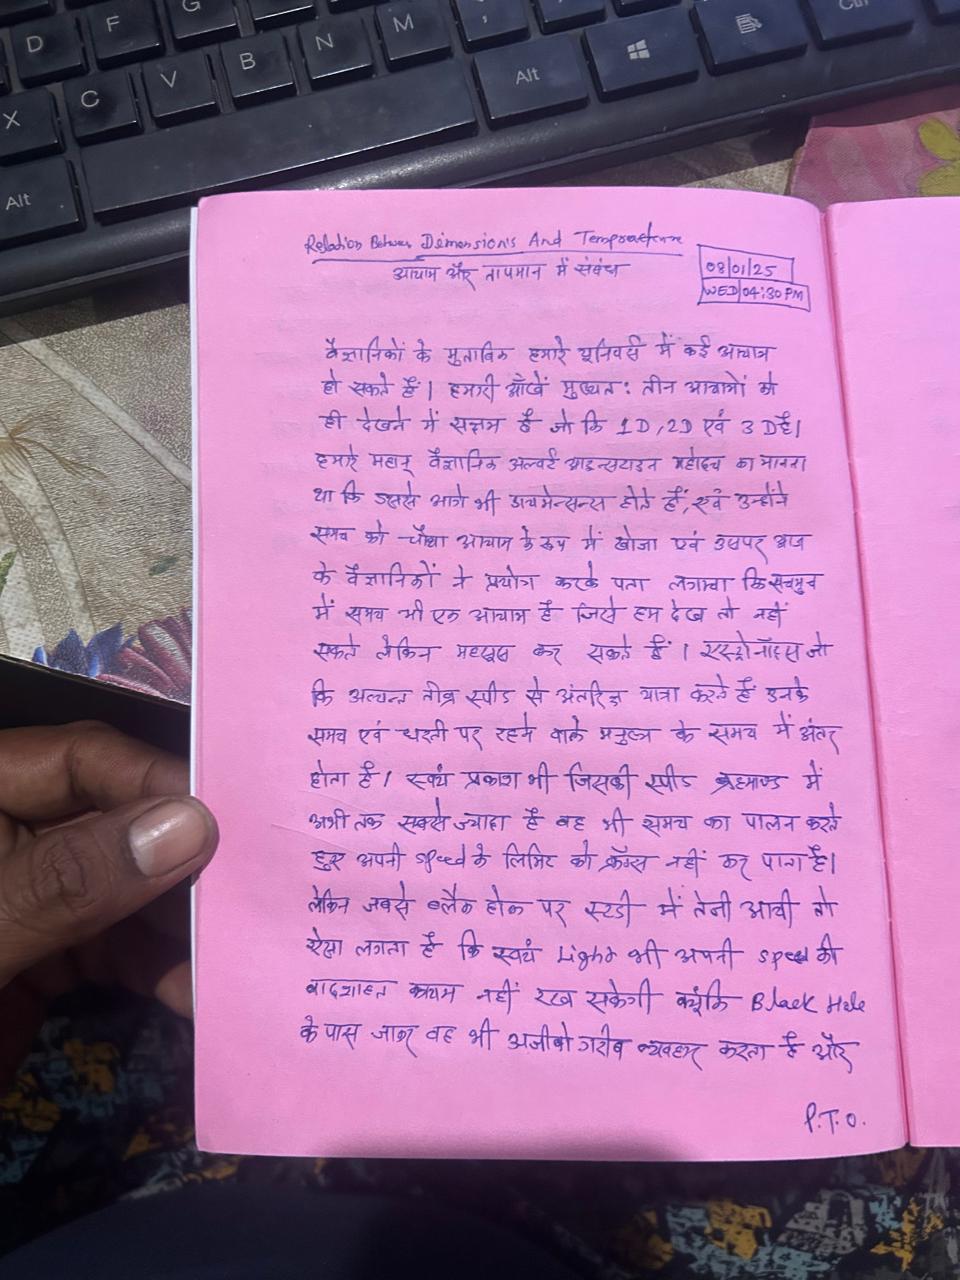 D
F
G
X
C
V
B
N
M
Alt
Alt
Ctrl
Relation Between Dimensions And Tempraeture
आयाम और तापमान में संबंध
08/01/25
WED/04:30 PM
वैज्ञानिकों के मुताबिक हमारे यूनिवर्स में कई आयाम
हो सकते हैं। हमारी आँखें मुख्यत: तीन आयामों को
ही देखने में सक्षम है जो कि 1D, 2D एवं 3D है।
हमारे महान् वैज्ञानिक अल्बर्ट आइन्सटाइन महोदय का मानना
था कि इससे आगे भी डायमेन्सन्स होते हैं, एवं उन्होंने
समय को चौथा आयाम के रूप में खोजा एवं उसपर आज
के वैज्ञानिकों ने प्रयोग करके पता लगाया कि सचमुच
में समय भी एक आयाम है जिसे हम देख तो नहीं
सकते लेकिन महसूस कर सकते हैं। एस्ट्रोनॉट्स जो
कि अत्यन्त तीव्र स्पीड से अंतरिक्ष यात्रा करते हैं उनके
समय एवं धरती पर रहने वाले मनुष्य के समय में अंतर
होता है। स्वयं प्रकाश भी जिसकी स्पीड ब्रह्माण्ड में
अभी तक सबसे ज्यादा है वह भी समय का पालन करते
हुए अपनी speed के लिमिट को क्रॉस नहीं कर पाता है।
लेकिन जबसे ब्लैक होल पर स्टडी में तेजी आयी तो
ऐसा लगता है कि स्वयं Light भी अपनी speed की
बादशाहत कायम नहीं रख सकेगी क्यूंकि Black Hole
के पास जाकर वह भी अजीबो गरीब व्यवहार करता है और
P.T.O.